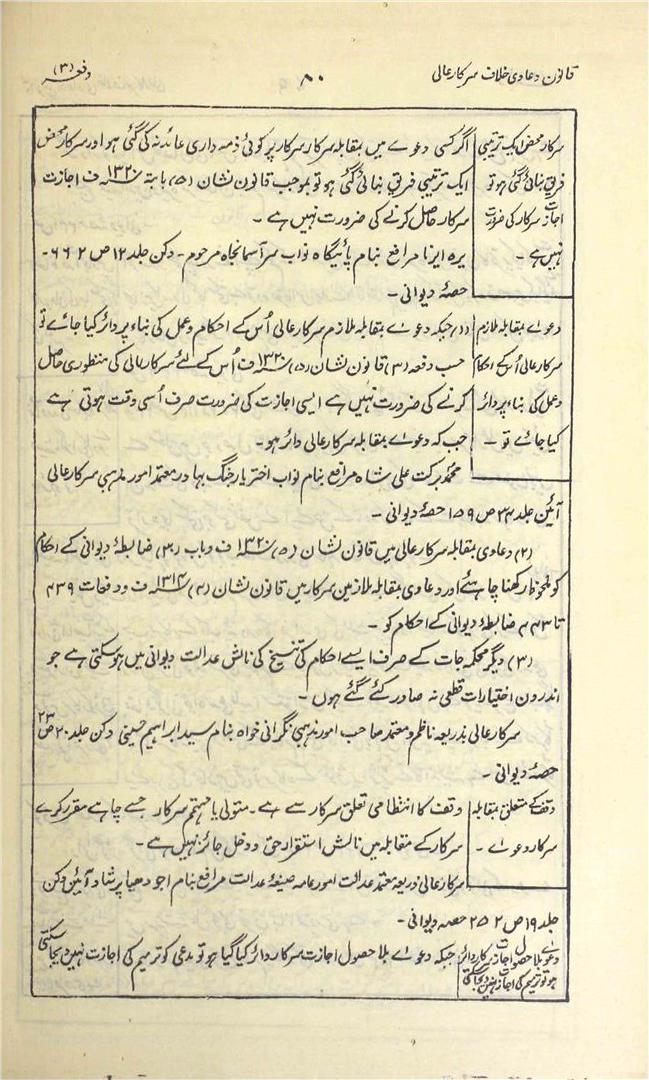 قانون دعاوی خلاف سرکار عالی
۸۰
دفعہ (۳)
سرکار محض ایک ترتیبی
فریق بنائی گئی ہو تو
اجازت سرکار کی ضرورت
نہیں ہے ۔
اگر کسی دعوے میں بمقابلہ سرکار سرکار پر کوئی ذمہ داری عائد نہ کی گئی ہو اور سرکار محض
ایک ترتیبی فریق بنائی گئی ہو تو بموجب قانون نشان (۵) بابتہ ۱۳۲۰ ف اجازت
سرکار حاصل کرنے کی ضرورت نہیں ہے ۔
یرہ ایرنا مرافع بنام پائیگاہ نواب سر آسمانجاہ مرحوم ۔ دکن جلد ۱۲ ص ۶۶۲ ۔
حصہ دیوانی ۔
دعوے بمقابلہ ملازم
سرکار عالی اُس کے احکام
و عمل کی بناء پر دائر
کیا جائے تو ۔
(۱) جبکہ دعوے بمقابلہ ملازم سرکار عالی اُس کے احکام و عمل کی بناء پر دائر کیا جائے تو
حسب دفعہ (۳) قانون نشان (۵) ۱۳۲۰ ف اُس کے لئے سرکار عالی کی منظوری حاصل
کرنے کی ضرورت نہیں ہے ایسی اجازت کی ضرورت صرف اُسی وقت ہوتی ہے
جب کہ دعوے بمقابلہ سرکار عالی دائر ہو ۔
محمد برکت علی شاہ مرافع بنام نواب اختر یار جنگ بہادر معتمد امور مذہبی سرکار عالی
آئین جلد ۲۴ ص ۱۵۹ حصہ دیوانی ۔
(۲) دعاوی بمقابلہ سرکار عالی میں قانون نشان (۵) ۱۳۲۰ ف و باب (۳۰) ضابطہ دیوانی کے احکام
کو ملحوظ رکھنا چاہئے اور دعاوی بمقابلہ ملازمین سرکار میں قانون نشان (۴) ۱۳۱۴ ف و دفعات ۴۳۹
تا ۴۴۳ ضابطہ دیوانی کے احکام کو ۔
(۳) دیگر محکمہ جات کے صرف ایسے احکام کی تنسیخ کی نالش عدالت دیوانی میں ہو سکتی ہے جو
اندرون اختیارات قطعی نہ صادر کئے گئے ہوں ۔
سرکار عالی بذریعہ ناظم و معتمد صاحب امور مذہبی نگرانی خواہ بنام سید ابراہیم حسینی دکن جلد ۲۰ ص ۲۳
حصہ دیوانی ۔
وقف کے متعلق بمقابلہ
سرکار دعوے ۔
وقف کا انتظامی تعلق سرکار سے ہے ۔ متولی یا مہتمم سرکار جسے چاہے مقرر کرے
سرکار کے مقابلہ میں نالش استقرار حق و دخل جائز نہیں ہے ۔
سرکار عالی ذریعہ معتمد عدالت امور عامہ صیغہ عدالت مرافع بنام اجودھیا پرشاد آئین دکن
جلد ۱۹ ص ۲۵۲ حصہ دیوانی ۔
دعوے بلا حصول اجازت سرکار دائر
ہو تو ترمیم کی اجازت نہیں دیجا سکتی
جبکہ دعوے بلا حصول اجازت سرکار دائر کیا گیا ہو تو مدعی کو ترمیم کی اجازت نہیں دیجا سکتی